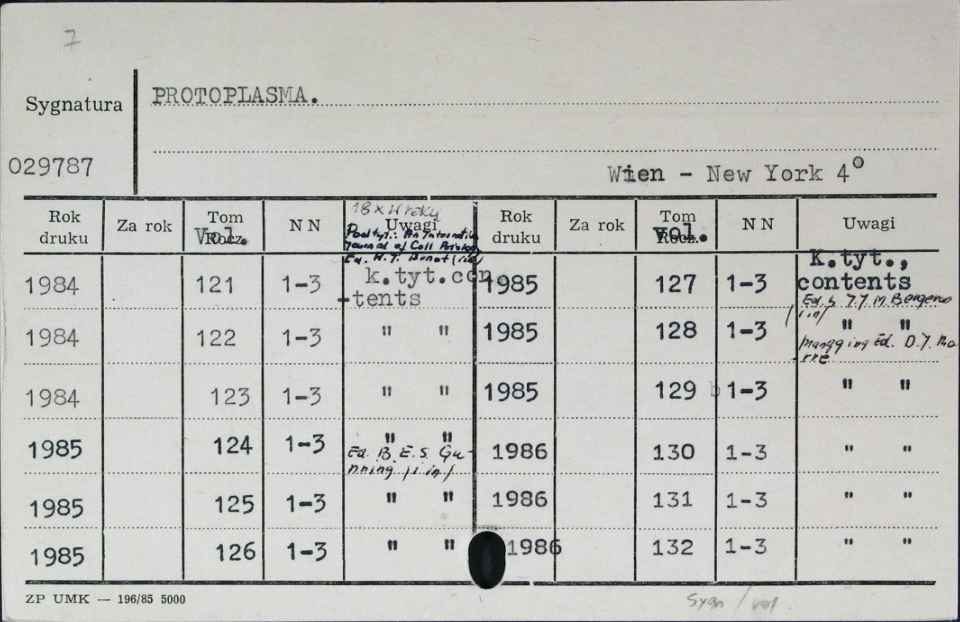 7
Sygnatura
PROTOPLASMA.
029787
Wien - New York 4°
18 x w roku
Rok druku Za rok Tom Rocz. Vol. NN Uwagi Rok druku Za rok Tom Rocz. vol. NN Uwagi
Podtyt.: An Internation
Journal of Cell Biology
Ed. W. J.
1984 121 1-3 k.tyt.con 1985 127 1-3 K.tyt.,
-tents contents
Ed. S. J. J. M.
/in/
1984 122 1-3 " " 1985 128 1-3 " "
Ed. D. J. Mo
-rré
1984 123 1-3 " " 1985 129 1-3 " "
1985 124 1-3 " " 1986 130 1-3 " "
Ed. B. E. S. Gu-
nning /i in/
1985 125 1-3 " " 1986 131 1-3 " "
1985 126 1-3 " " 1986 132 1-3 " "
ZP UMK — 196/85 5000
Sygn / vol.